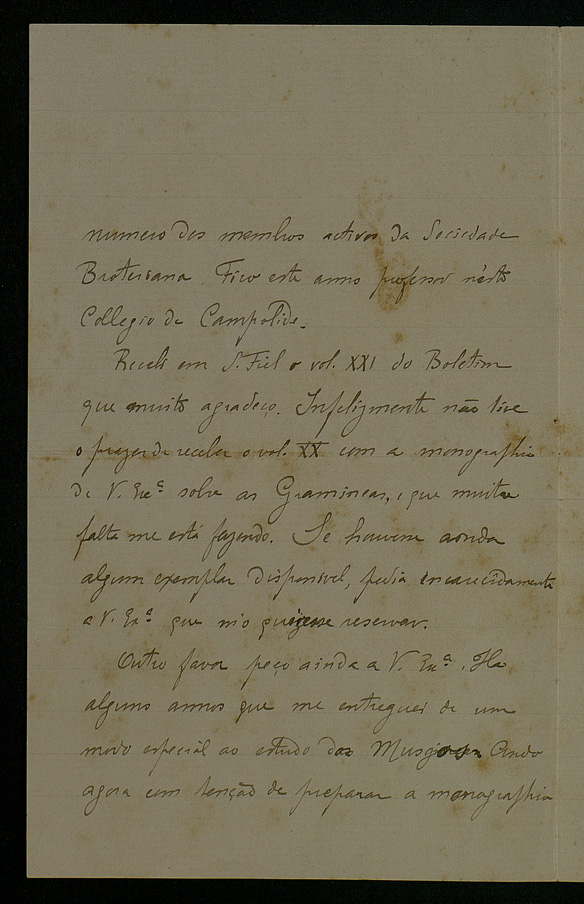 numero dos membros activos da Sociedade
Broteriana. Fico este anno professor n'este
Collegio de Campolide.
Recebi em S. Fiel o vol. XXI do Boletim
que muito agradeço. Infelizmente não tive
o prazer de receber o vol. XX com a monographia
de V. Exª sobre as Gramineas, e que muita
falta me está fazendo. Se houver ainda
algum exemplar disponivel, pedia encarecidamente
a V. Exª que m'o quizesse reservar.
Outro favor peço ainda a V. Exª. Ha
alguns annos que me entreguei de um
modo especial ao estudo dos Musgos. Ando
agora com tenção de preparar a monographia